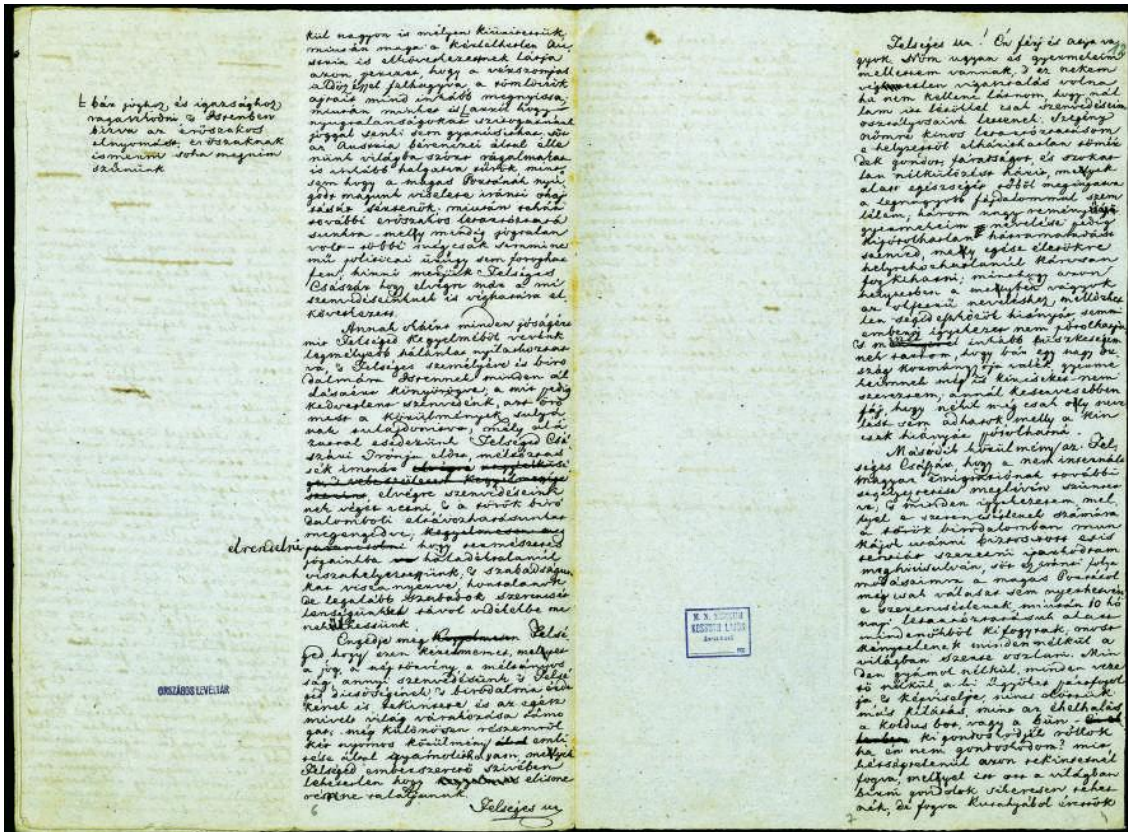 kül nagyon is mélyen
miután maga a kérlelhetlen Au-
stria is elkövetkezettnek látja
azon perczet, hogy a vérszomjas
felhagyva, a tömlöczök
ajtait mind inkább megnyissa,
miután minket is ⌊ arról hogy
nyugtalanságokat
joggal senki sem gyanusithat, sőt
az Austria bérenczei által elle-
nünk világba szórt rágalmakat
is inkább halgatva tűrök mint
sem hogy a magas Portának nyu-
godt magunk viselete iránti
miután tehát
további erőszakos letartóztatá-
sunkra – melly mindig jogtalan
volt – többé még csak semmi ne-
mű politicai ürügy sem foroghat
fen, hinni merjük Felséges
Császár hogy elvégre már a mi
szenvedéseinknek is vég határa el-
következett.
⌊ bár joghoz, és igazsághoz
ragaszkodni, 's Istenben
bízva az erőszakos
elnyomást, erőszaknak
ismerni soha meg nem
szününk
Annak okáért minden jóságért
mit Felséged kegyelméből vevénk
legmélyebb hálánkat nyilatkoztat-
va, 's Felséged személyére és biro-
dalmára Istennek minden ál-
dásaiért könyörögve, a mit pedig
kedvetlent szenvedénk, azt örö-
mest a körülmények sulyá-
nak tulajdonitva, mély alá-
zattal esedezünk Felséged Csá-
szári Trónja előtt, méltóztas-
sék immár
elvégre szenvedéseink-
nek végét vetni, 's a török biro-
dalombóli eltávozhatásunkat
megengedve,
elrendelni
hogy természetes
jogainkba haladéktalanúl
visszahelyeztessünk, 's szabadságun-
kat visszanyerve, hontalanok
de legalább szabadok szerencsét-
lenségünket távol vidékekbe me-
nekithessünk.
Engedje meg Felsé-
ged hogy ezen kérelmemet, mellyet
a jog, a népt törvény, a méltányos-
ság, annyi szenvedésünk 's Felsé-
ged dicsőségének 's birodalma érde-
kének is tekintete és az egész
mivelt világ várakozása támo-
gat, még különösen részemről
két nyomos körülmény emli-
tése által gyámolithassam, mellyek
Felséged emberszerető szivében
lehetetlen hogy elisme-
résre ne találjanak.
Felséges ur
6
ORSZÁGOS LEVÉLTÁR
Felséges ur! Én férj és atya va-
gyok. Nőm ugyan és gyermekeim
mellettem vannak, 's ez nekem
véghetetlen vigasztalás volna
ha nem kellene látnom, hogy nál-
lam létökkel csak szenvedéseim
osztályosaivá lesznek. Szegény
nőmre kinos letartóztatásom
e helyzettől elhárithatlan tömér-
dek gondot, fáradságot, és szokat-
lan nélkülözést hárit, mellyek
alatt egészségét tőből megingatva
a legnagyobb fájdalommal szem-
lélem; három nagy reményű
gyermekeim nevelése pedig
kipótolhatlan hátramaradást
szenved, melly egész életökre
helyrehozhatatlanúl károsan
fog kihatni; minthogy azon
helyzetben a mellyben vagyok
az illyszerű neveléshez mellőzhet-
len segédeszközök hiányát semmi
emberi igyekezet nem pótolhatja
inkább büszkeségem-
nek tartom, hogy bár egy nagy or-
szág kormányzója valék, gyerme-
keimnek még is kincseket nem
szereztem; annál keservesebben
fáj, hogy nékik még csak olly neve-
lést sem adhatok melly a kin-
csek hiányát pótolhatná.
Második körülmény az, Fel-
séges Császár, hogy a nem internált
magyar emigratiónak további
segélyeztetése meglévén szüntet-
ve, 's minden igyekezetem, mel-
lyel e szerencsétlenek számára
a török birodalomban mun-
kájok utánni biztositott exis-
tentiát szerezni igazkodtam
meghiúsúlván, sőt ez iránti folya-
modásaimra a magas Portától
még csak választ sem nyerhetvén
e szerencsétlenek, miután 10 hó-
napi letartóztatásuk alatt
mindenökből kifogytak, most
kénytelenek minden nélkül a
világban szerte oszlani. Min-
den gyámol nélkül, minden veze-
tő nélkül a ki ügyöket pártfogol-
ja 's képviselje, nincs előttük
más kilátás, mint az éhelhalás
a koldus bot, vagy a bün.
ki gondoskodjék róllok
ha én nem gondoskodom? mit,
hétségtelenül azon tekintetnél
fogva, mellyel itt ott a világban
birni gondolok sikeresen tehet-
nék, de fogva Kutahjából
M. N. MÚZEUM
KOSSUTH LAJOS
7